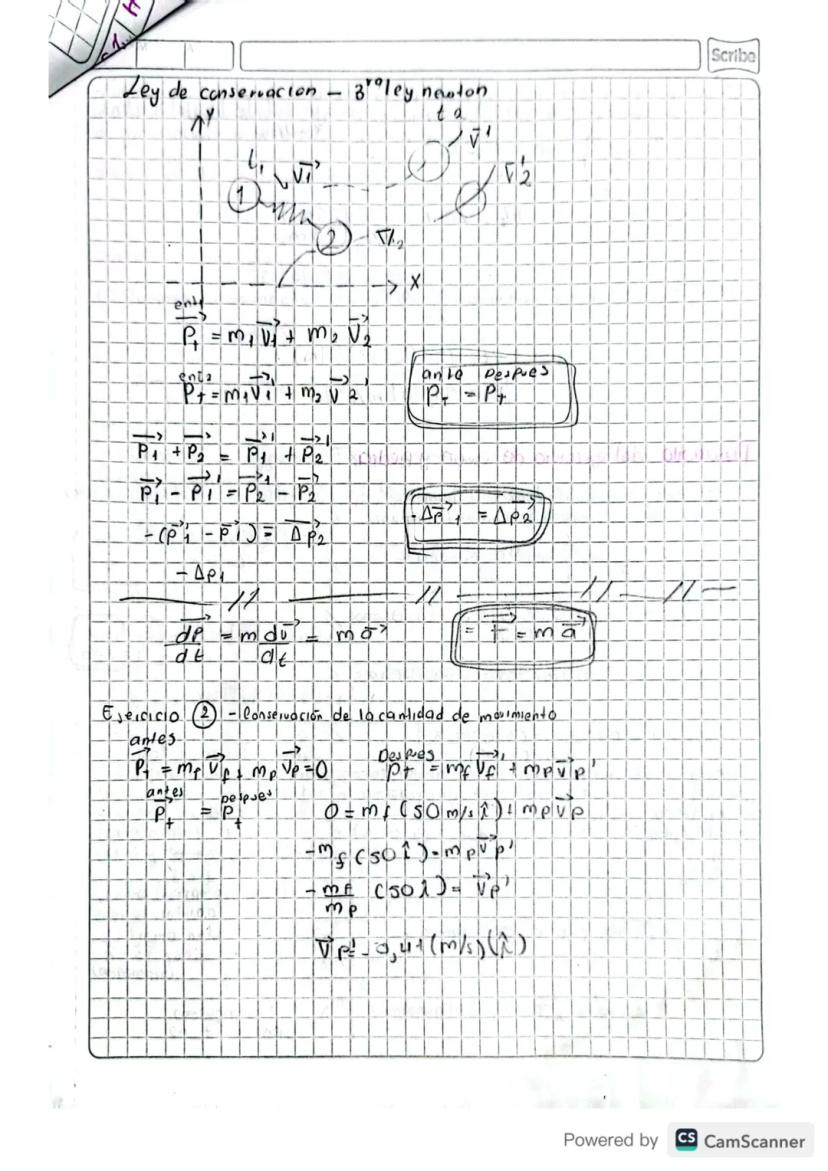 Scribe
Ley de conservacion – 3ra ley newton
Y
t2
V⃗'
V⃗1
V⃗'2
1
2
V⃗2
X
P⃗t = m1 V⃗1 + m2 V⃗2
P⃗t = m1 V⃗1' + m2 V⃗2'
ante Despues
Pt = Pt
P⃗1 + P⃗2 = P⃗1' + P⃗2'
P⃗1 - P⃗1' = P⃗2' - P⃗2
-ΔP⃗1 = ΔP⃗2
-(P⃗'1 - P⃗1) = ΔP⃗2
-ΔP1
dP⃗/dt = m dv⃗/dt = m a⃗
= F⃗ = m a⃗
Ejercicio 2 - Conservación de la cantidad de movimiento
antes
P⃗t = mf V⃗f + mp V⃗p = 0
Despues
P⃗t = mf V⃗f' + mp V⃗p'
antes Despues
P⃗t = Pt
0 = mf (50 m/s î) + mp V⃗p
-mf (50 î) = mp V⃗p'
-mf/mp (50 î) = V⃗p'
V⃗p' = -0,41 (m/s) (î)
Powered by CS CamScanner